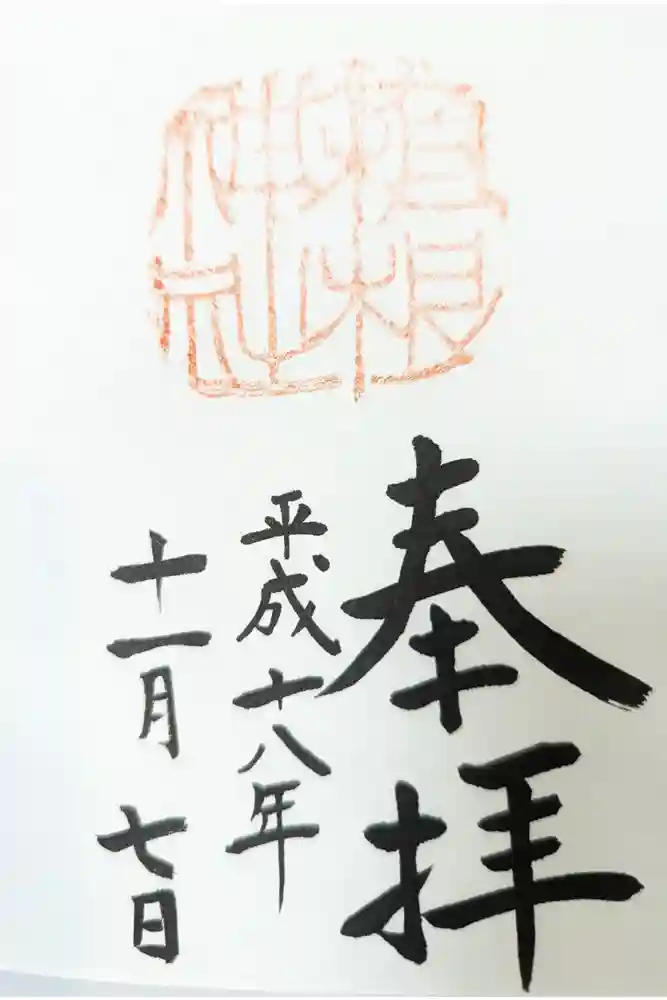 植根
神社
奉拝
平成十八年
十一月七日